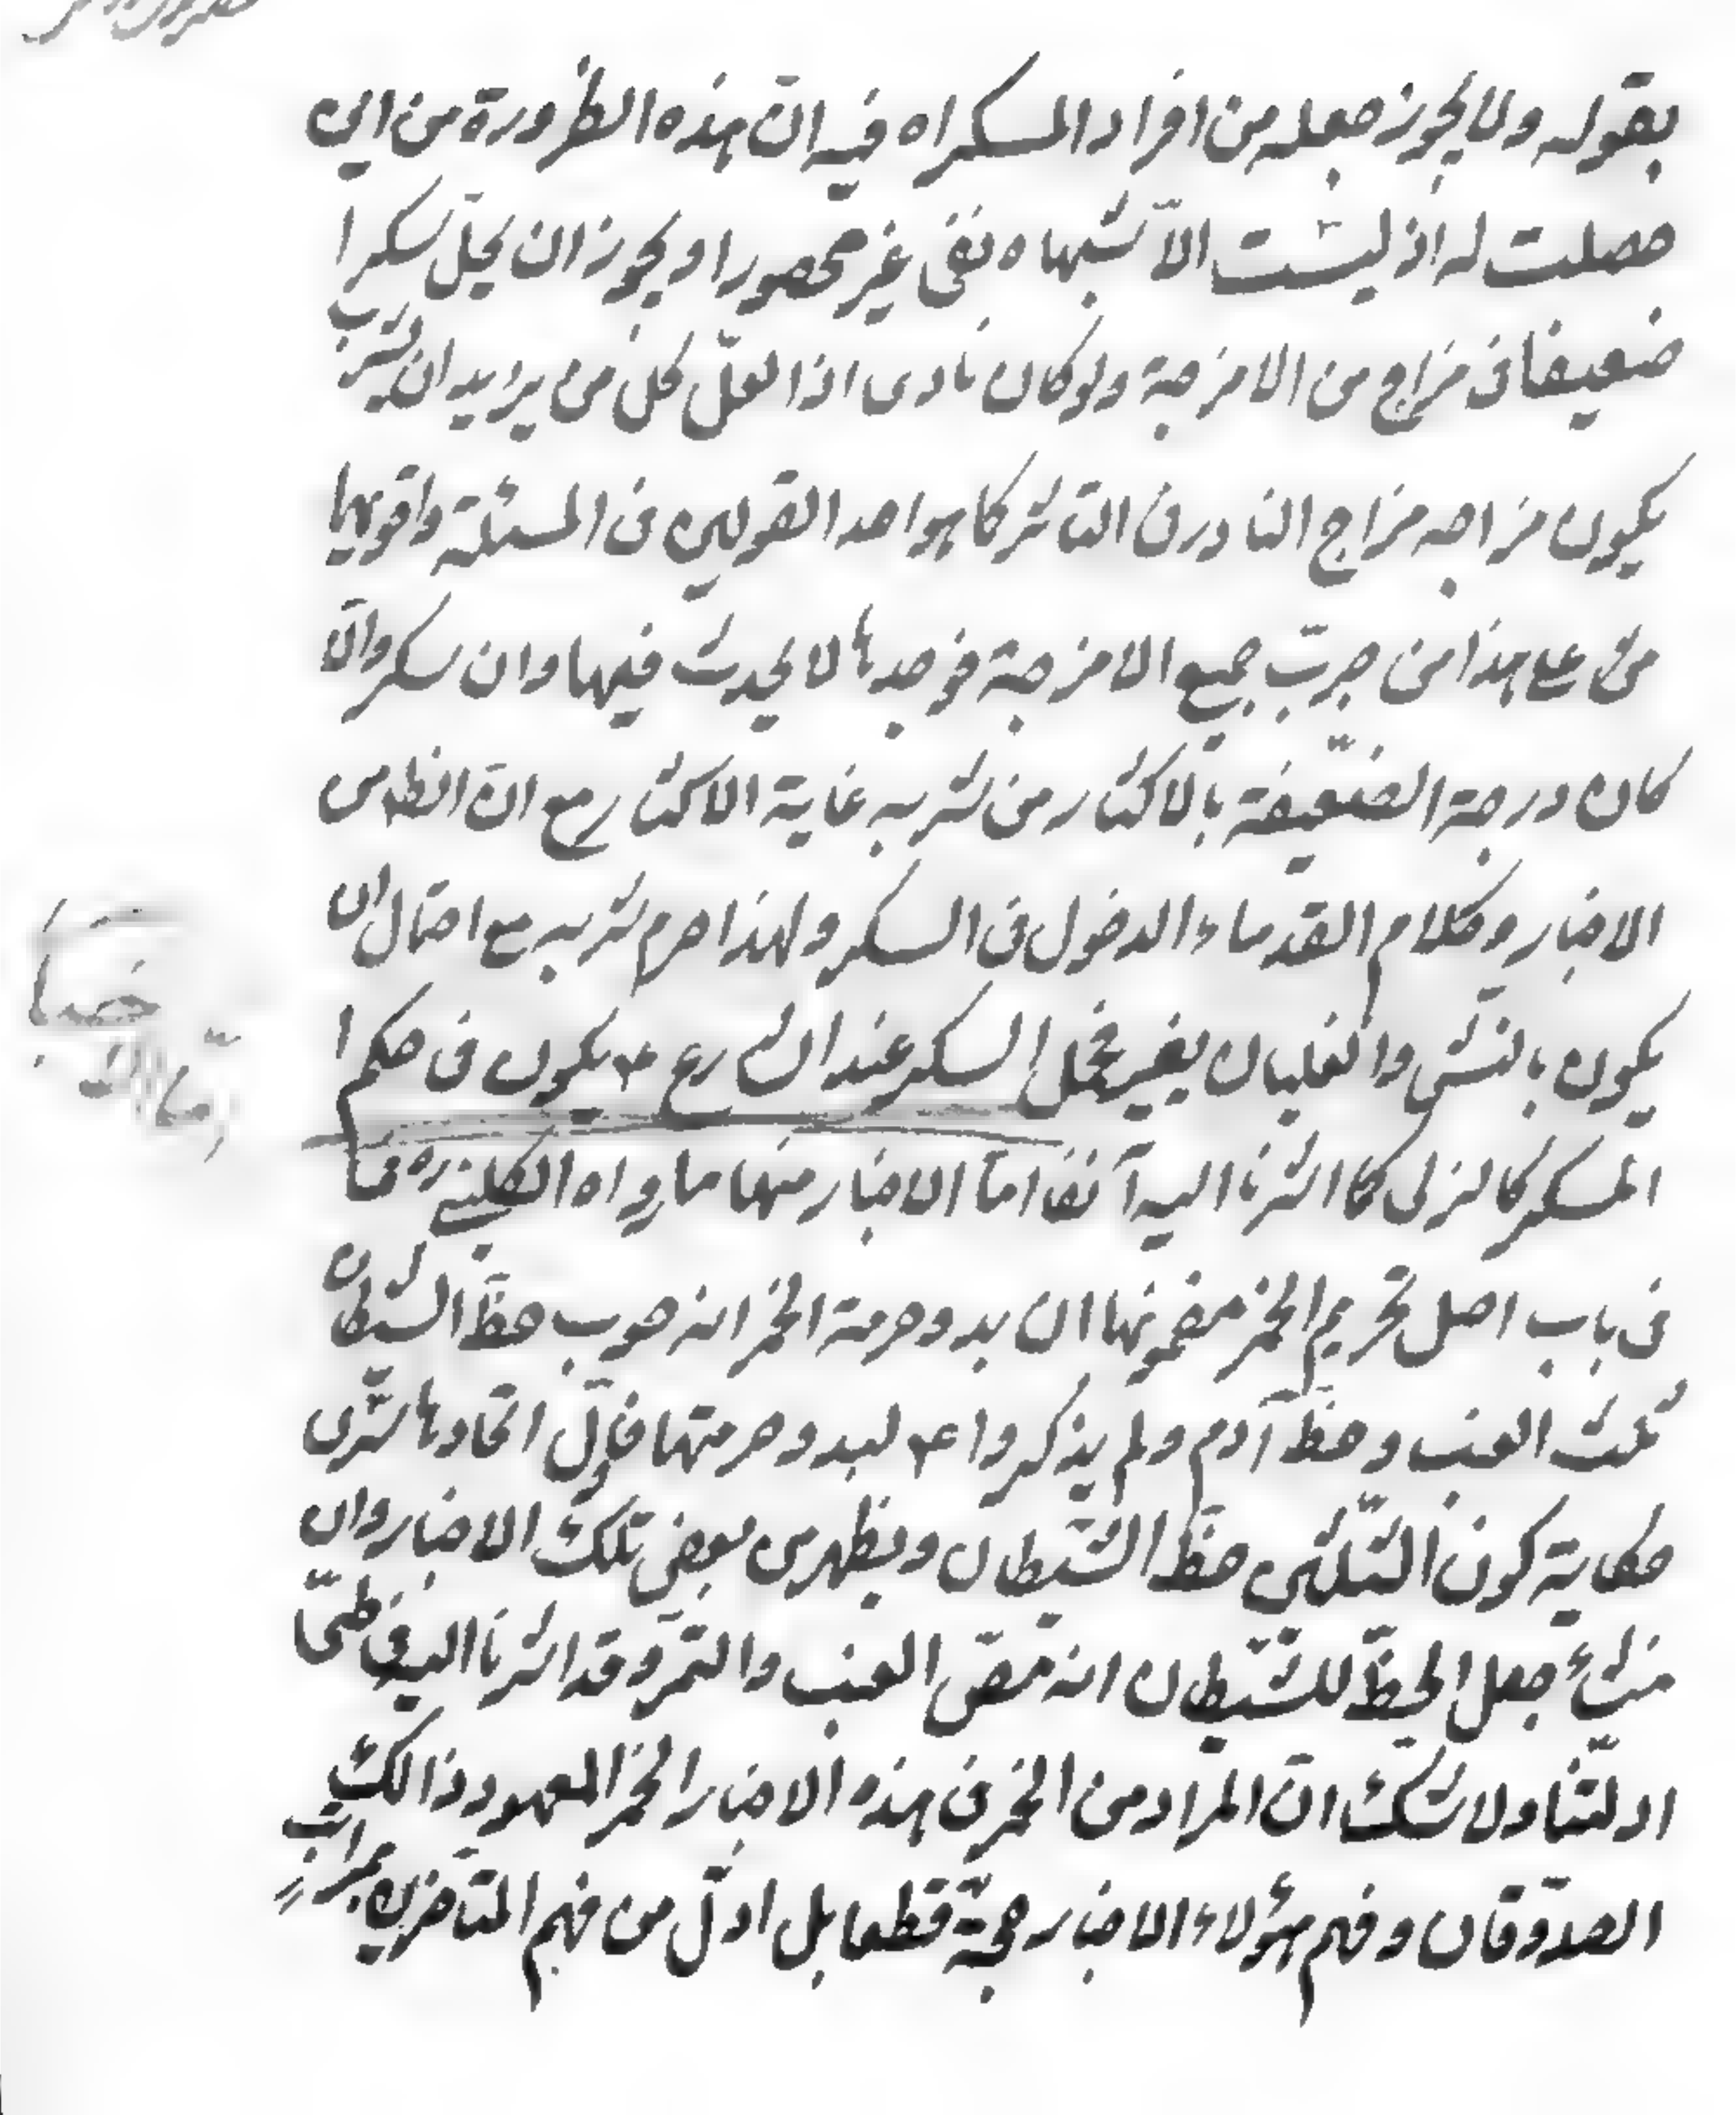 بقوله ولا يجوز جعله من افراد المسكر اه فيه ان هذه الضرورة من اين
حصلت له اذ ليست الا شبهاه نفى غير محصور او يجوز ان يحل سكرا
ضعيفا فى مزاج من الامزجة ولو كان نادى اذا لعلّ كل من يريد ان يشرب
يكون مزاجه مزاج النادر فى التاثر كما هو احد القولين فى المسئلة واقويهما
على هذا من جرب جميع الامزجة فوجدها لا يحدث فيها وان سكر والّا
كان درجة الضعيفة بالاكثار من شربه غاية الاكثار مع ان الظ من
الاخبار وكلام القدماء الدخول فى السكر ولهذا حرم شربه مع احتمال ان
يكون بالنش والغليان يغير السكر عند الشارع يكون فى حكم ا
المسكر كما لزلى كما اشرنا اليه آنفا امّا الاخبار منها ما رواه الكلينى ره
فى باب اصل تحريم الخمر مضمونها ان بدو حرمة الخمر انه صوب حظّ الشيطان
ثلث العنب وحظّ آدم ولم يذكروا لبدو حرمتها اتحادها شرى
حكاية كون الثلثين حظّ الشيطان ويظهر من بعض تلك الاخبار وان
منشأ جعل الحظّ للشيطان انه مصّ العنب والتمر وقد اشرنا اليه فى طىّ
ادلتنا ولا شك انّ المراد من الخمر فى هذه الاخبار الخمر المعهود وذالك
الصدوقان وفهم هؤلاء الاخبار حجّة قطعا بل ادلّ من فهم المتاخرين بمراتب